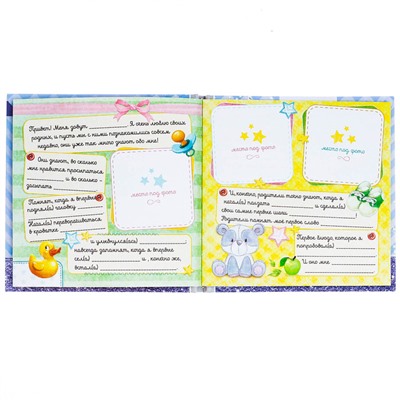 Привет! Меня зовут ____________. Я очень люблю своих
родных, и пусть мы с ними познакомились совсем
недавно, они уже так много знают обо мне!
Они знают, во сколько
мне нравится просыпаться
____________ и во сколько -
засыпать ____________.
место под фото
Помнят, когда я впервые
поднял(а) головку ____________.
Начал(а) переворачиваться
в кроватке ____________
____________ и улыбнулся(ась)
навсегда запомнят, когда я впервые
сел(а) ____________ и, конечно же,
встал(а) ____________.
место под фото
место под фото
И конечно, родители точно знают, когда я
начал(а) ползать ____________, сделал(а)
свои самые первые шаги ____________.
Родители помнят мое первое слово
____________.
Первое блюдо, которое я
попробовал(а)
____________.
И оно мне ____________.